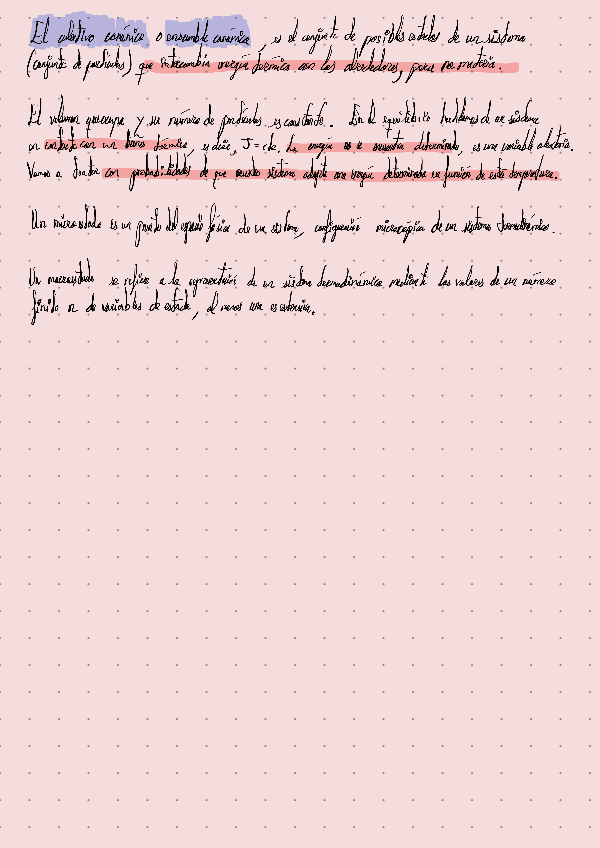 El colectivo canónico o ensamble canónico, es el conjunto de posibles estados de un sistema
(conjunto de partículas) que intercambia energía térmica con los alrededores, pero no materia.
El volumen que ocupa y su número de partículas es constante. En el equilibrio hablamos de un sistema
en contacto con un baño térmico, es decir, T = cte. La energía no se encuentra determinada, es una variable aleatoria.
Vamos a tratar con probabilidades de que nuestro sistema adopte una energía determinada en función de esta temperatura.
Un microestado es un punto del espacio fásico de un sistema, configuración microscópica de un sistema termodinámico.
Un macroestado se refiere a la representación de un sistema termodinámico mediante los valores de un número
finito n de variables de estado, al menos una es extensiva.